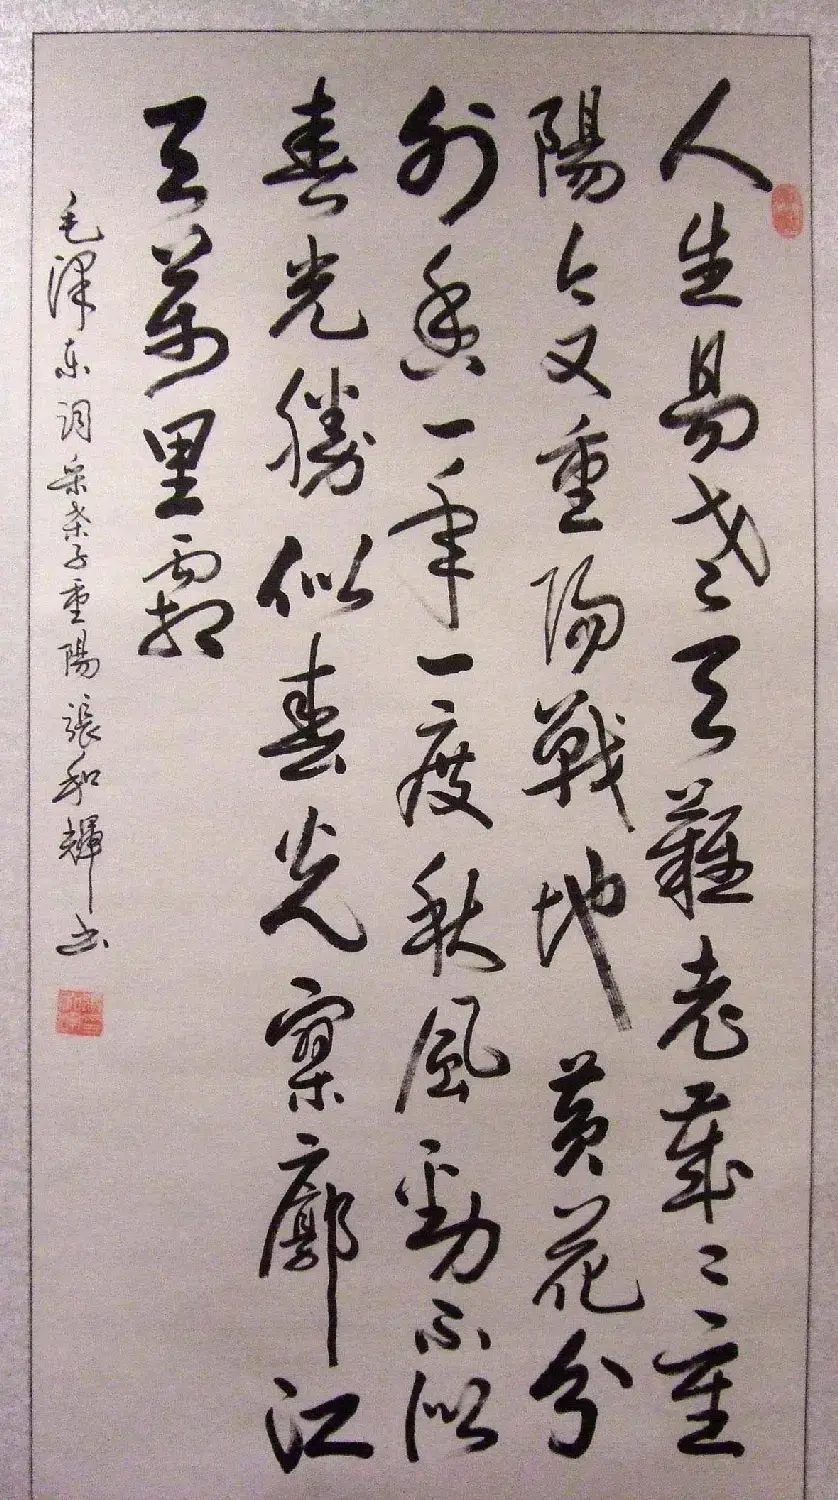 人生易老天難老歲々重
陽今又重陽戰地黃花分
外香一年一度秋風勁不似
春光勝似春光寥廓江
天萬里霜
毛泽东词采桑子重陽張和輝书